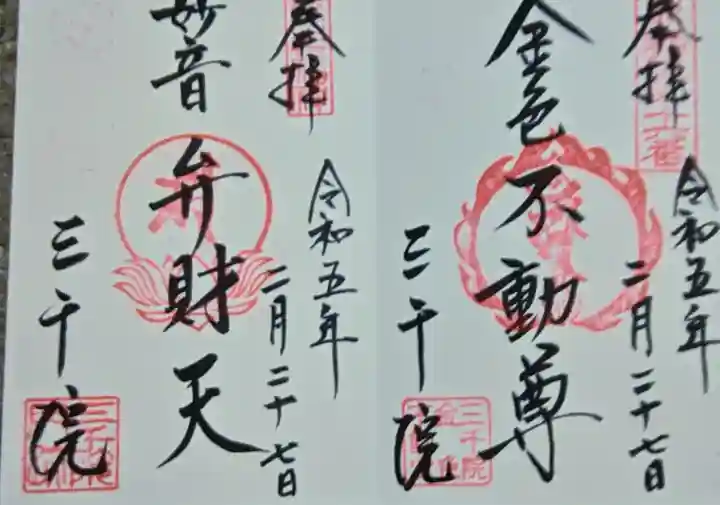 奉拝
令和五年
二月二十七日
金色不動尊
三千院
奉拝
令和五年
二月二十七日
妙音
弁財天
三千院